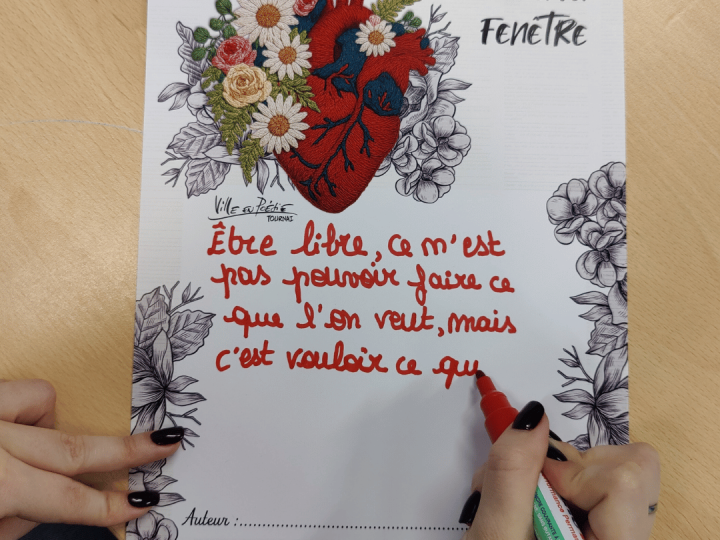 FENÊTRE
Ville en Poésie
TOURNAI
Être libre, ce n'est
pas pouvoir faire ce
que l'on veut, mais
c'est vouloir ce qu
Auteur :